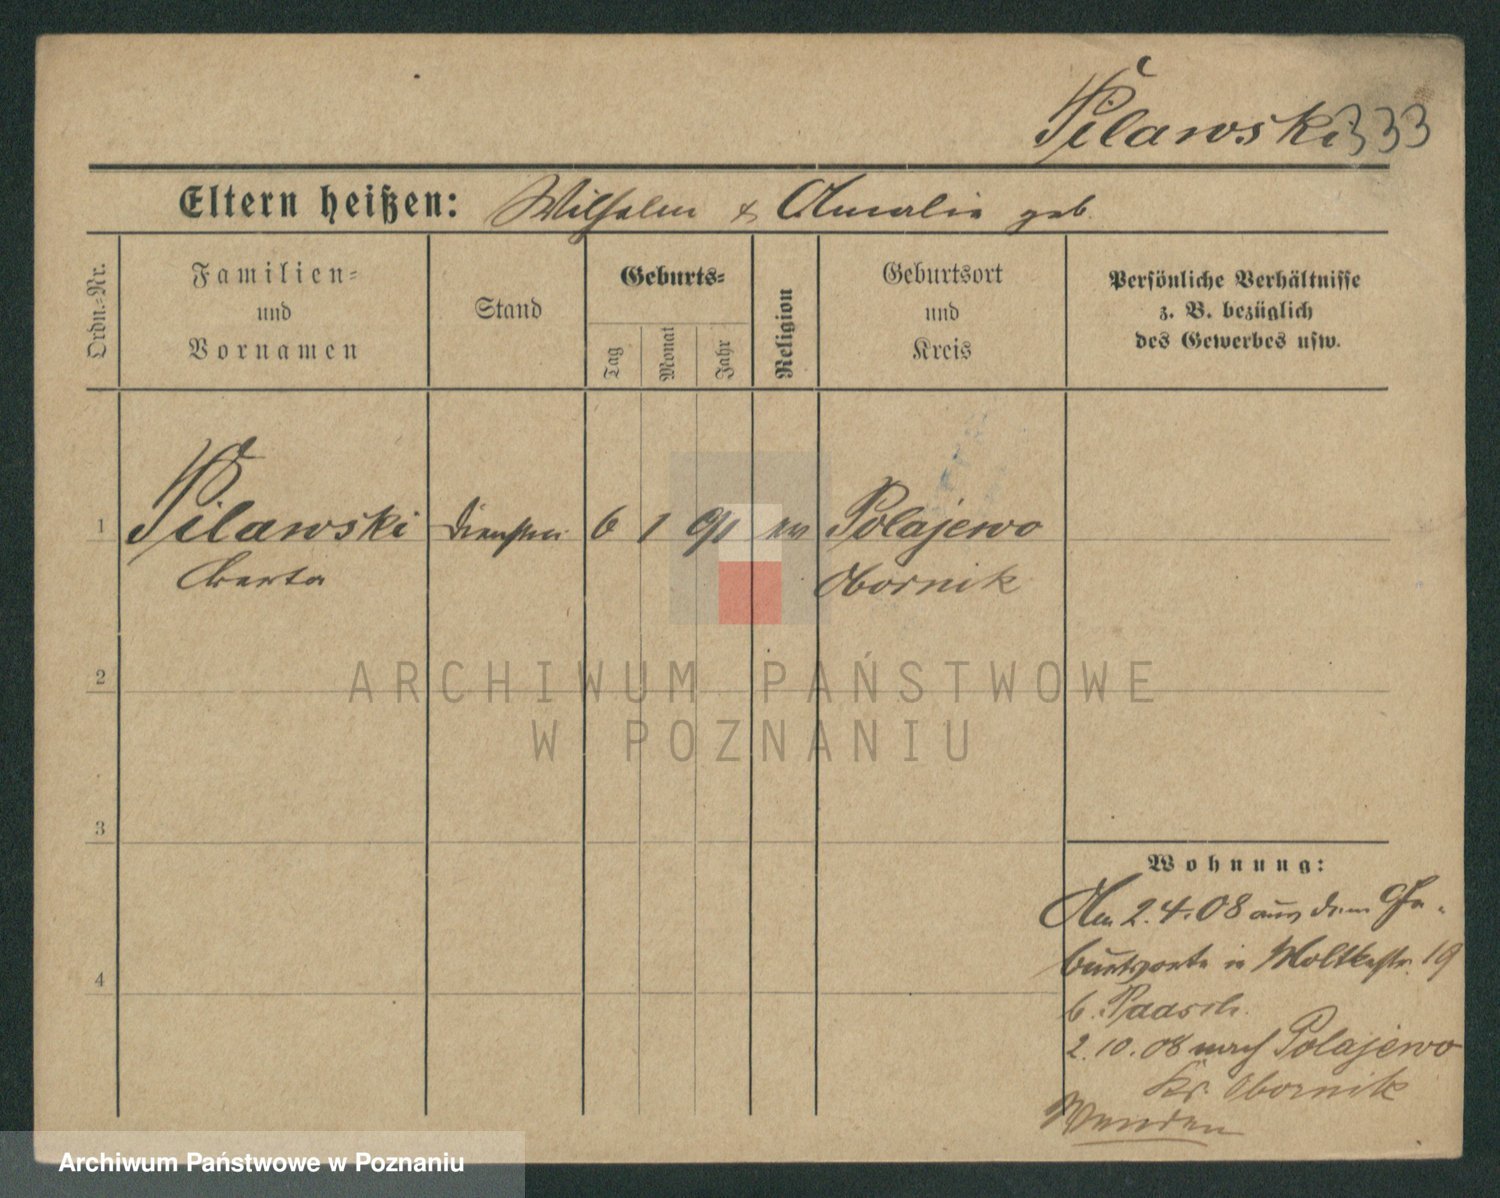 Pilawski 333
Eltern heißen: Wilhelm & Amalie geb.
Ordn.-Nr.
Familien-
und
Vornamen
Stand
Geburts-
Tag
Monat
Jahr
Religion
Geburtsort
und
Kreis
Persönliche Verhältnisse
z. B. bezüglich
des Gewerbes usw.
1 Pilawski 6 1 91 ev Polajewo
Berta Obornik
2
3
4
Wohnung:
Am 2.4.08 aus dem Ge-
burtsorte in Moltkestr. 19
b. Paasch.
2.10.08 nach Polajewo
Kr. Obornik
Wenden
ARCHIWUM PAŃSTWOWE
W POZNANIU
Archiwum Państwowe w Poznaniu